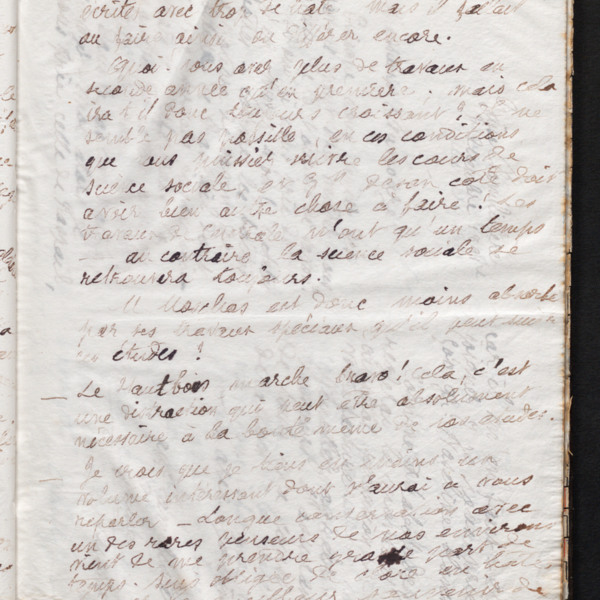 écrites avec trop de hâte mais il fallait
ou faire ainsi ou différer encore.
Quoi. vous avez plus de travaux en
seconde année qu'en première, mais cela
ira-t-il donc toujours croissant? Il ne me
semble pas possible, en ces conditions
que vous puissiez suivre les cours de
science sociale et
avoir bien autre chose à faire! Les
travaux de Centrale n'ont qu'un temps
— au contraire la science sociale se
retrouvera toujours.
M. est donc moins absorbé
par ses travaux spéciaux qu'il peut
études?
— Le hautbois marche bravo! cela, c'est
une distraction qui peut être absolument
nécessaire à la bonté même de vos études.
— Je crois que je tiens en mains un
volume intéressant dont j'aurai à vous
reparler — Longue conversation avec
un des rares penseurs de nos environs
vient de me prendre grande part de
temps. suis obligée de
souvenir de